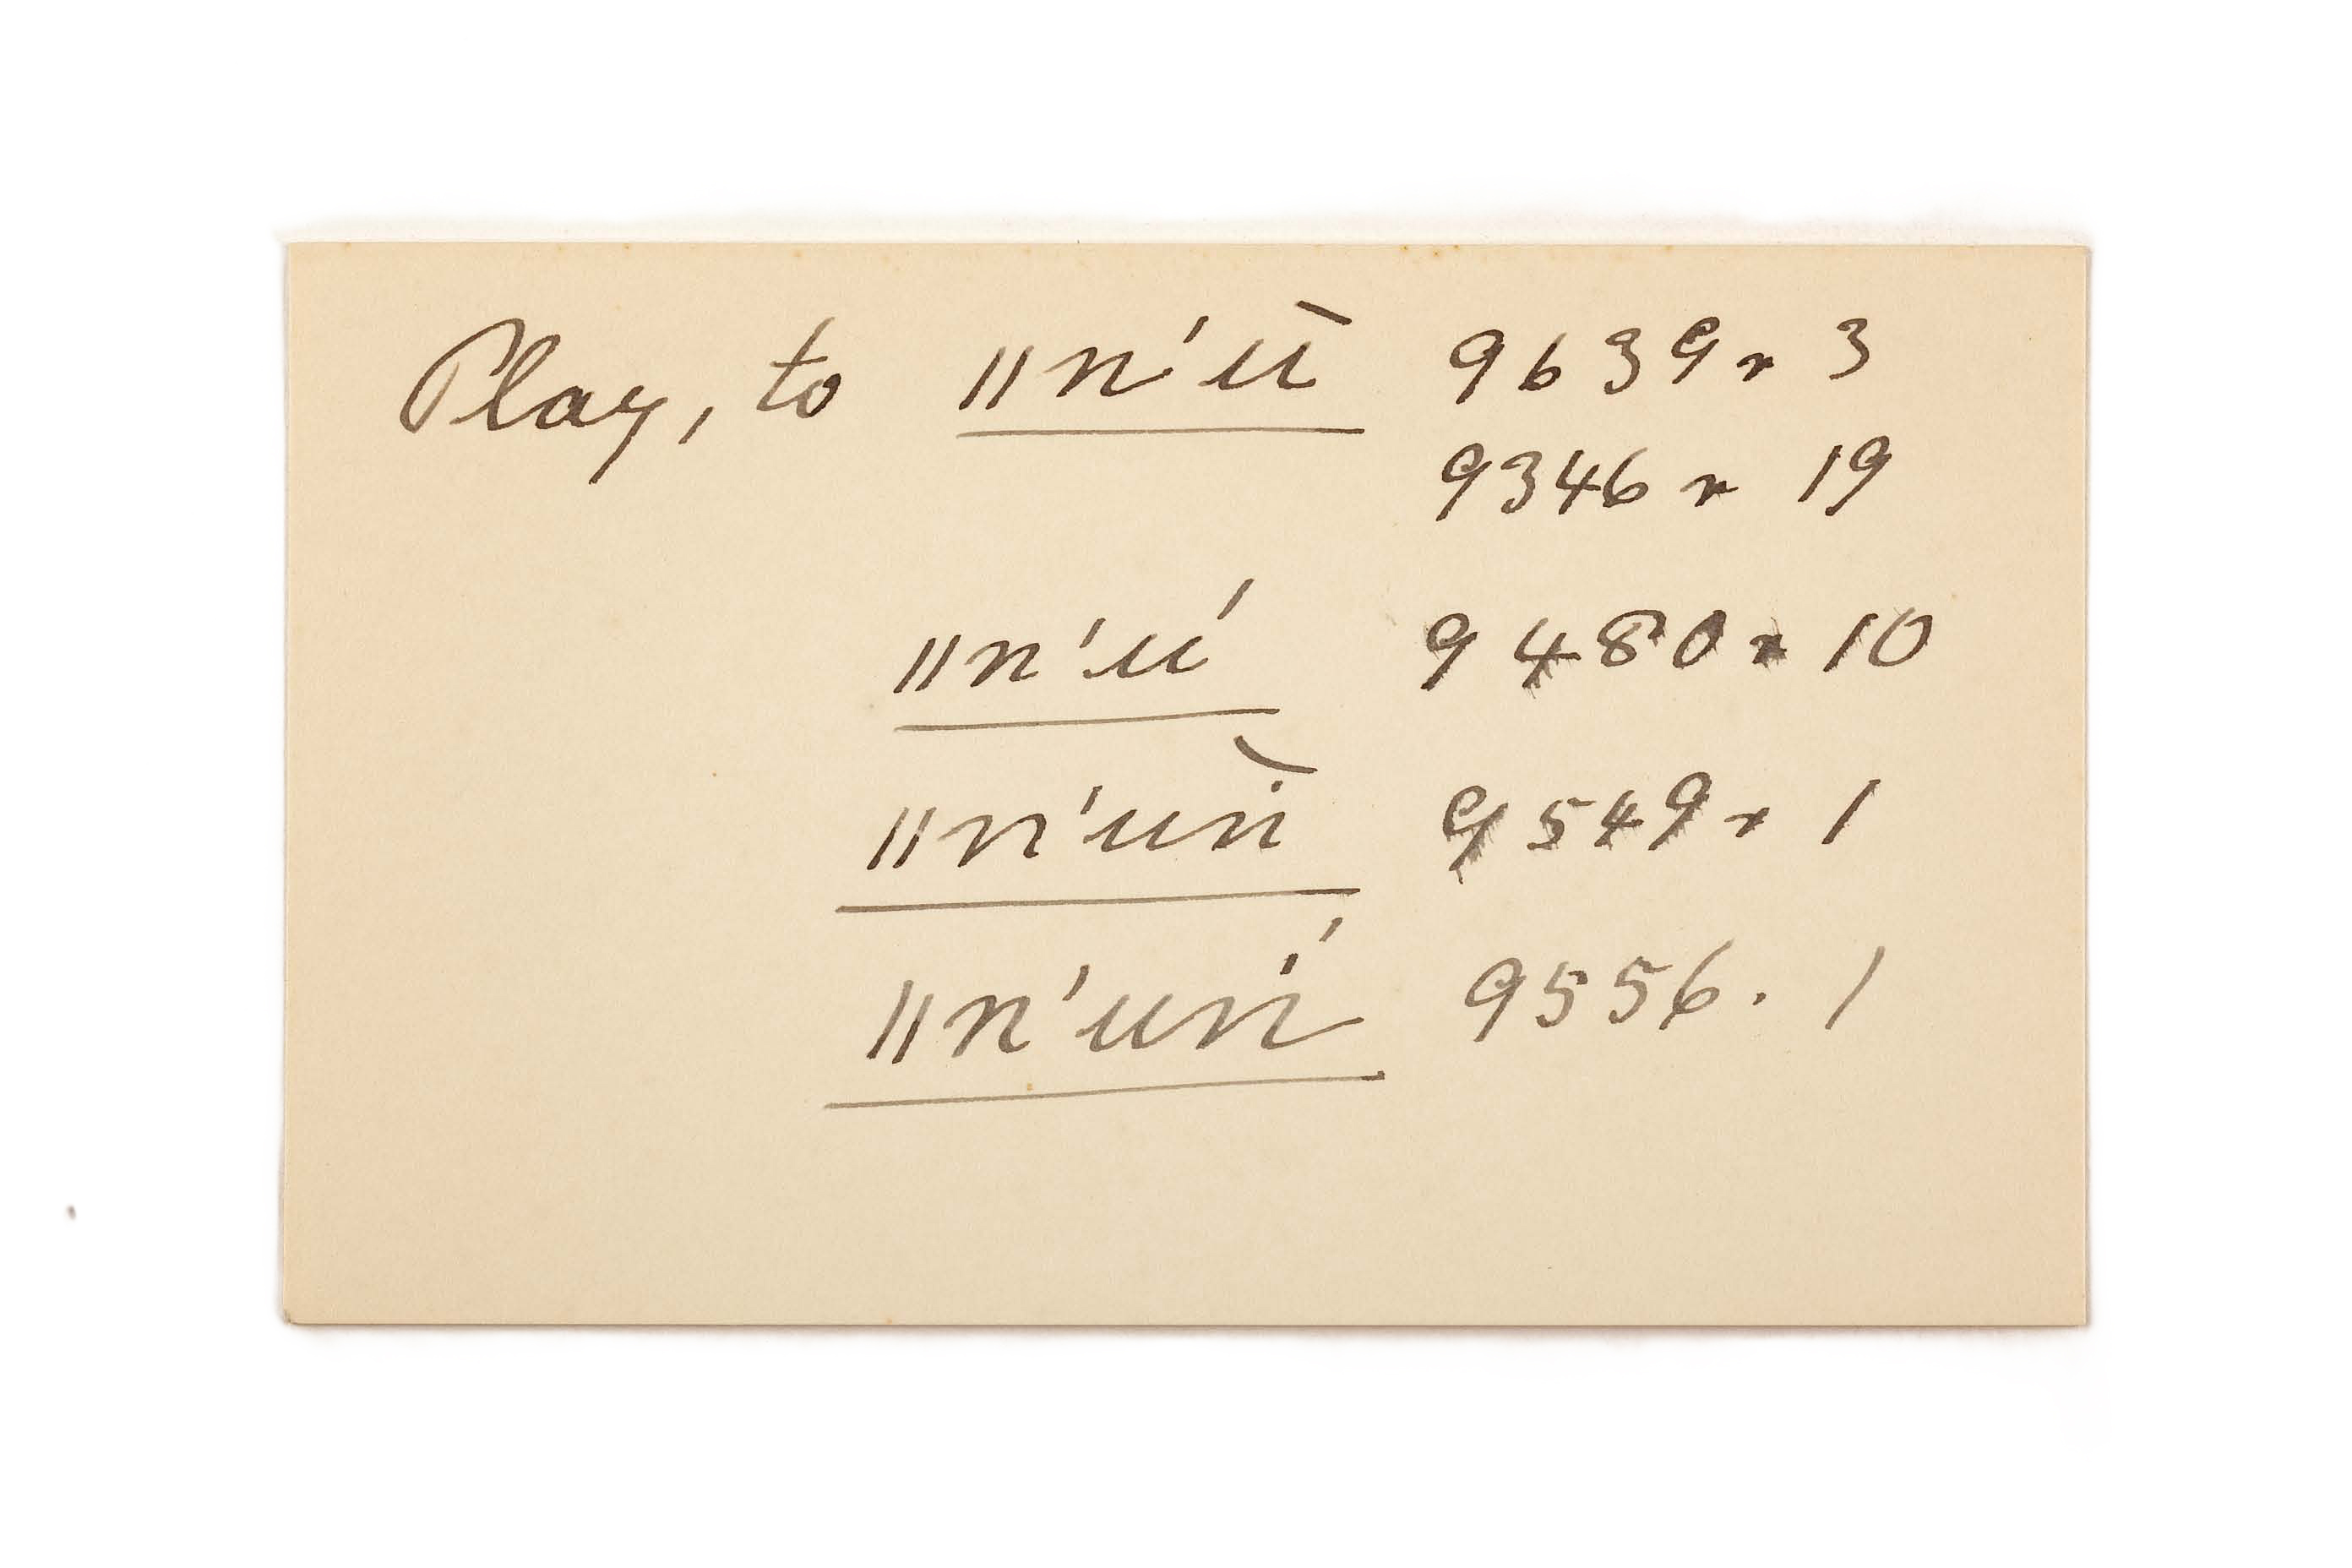 Play, to ǁn'ù 9639r 3
9346 r 19
ǁn'ú 9480r 10
ǁn'uṅ̀ 9549r 1
ǁn'uṅ́ 9556. 1